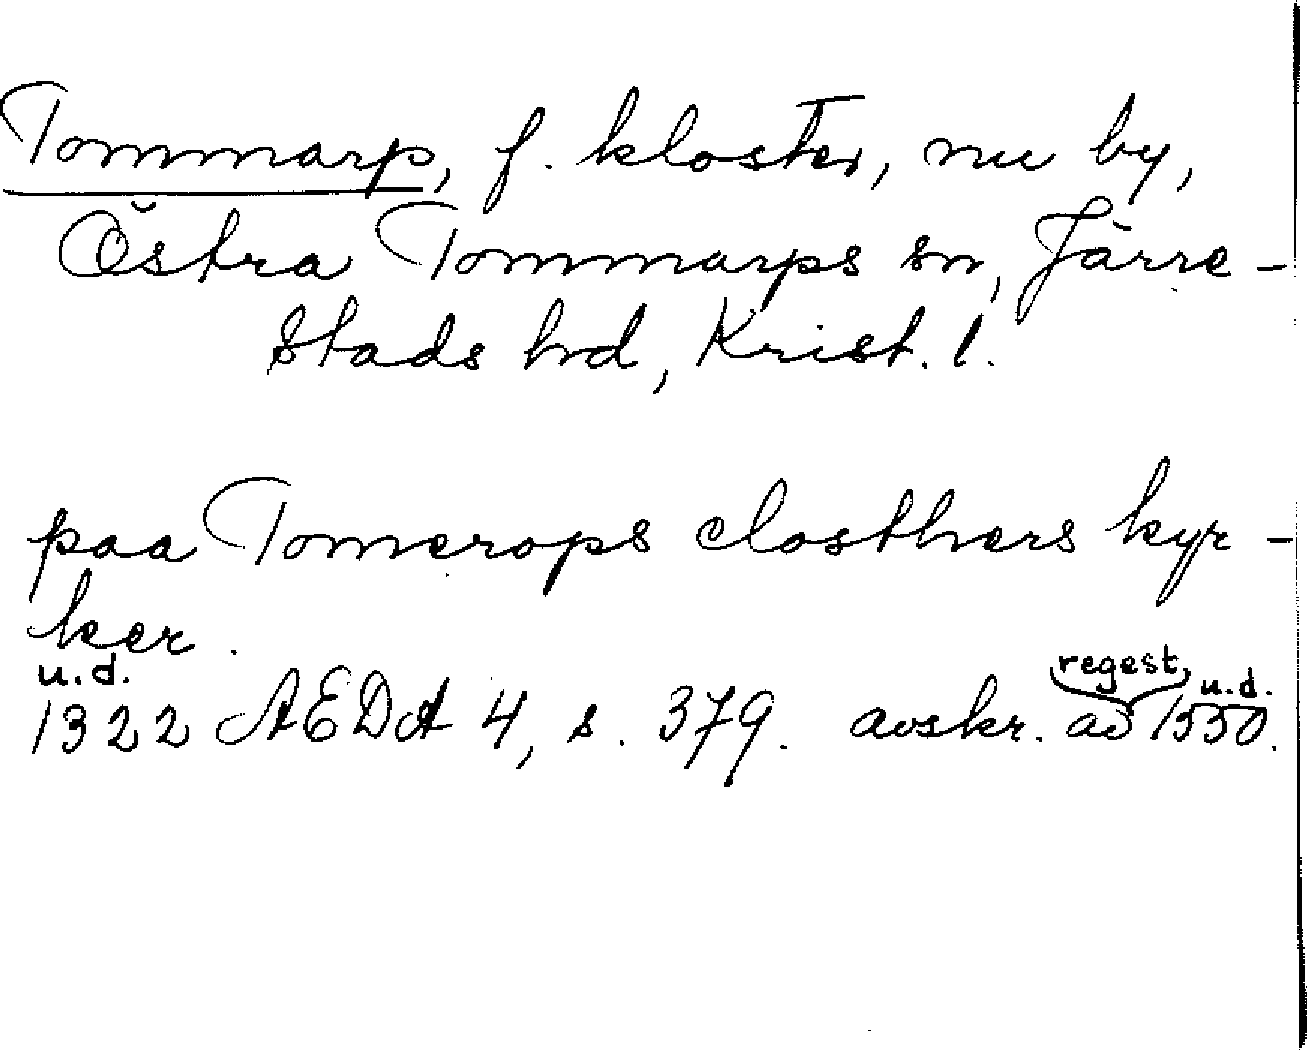 Tommarp, f. kloster, nu by,
Östra Tommarps sn, Järre-
stads hd, Krist. l.
paa Tomerops closthers kyr-
ker.
u.d. regest, u.d.
1322 AEDA 4, s. 379. avskr. av 1550.